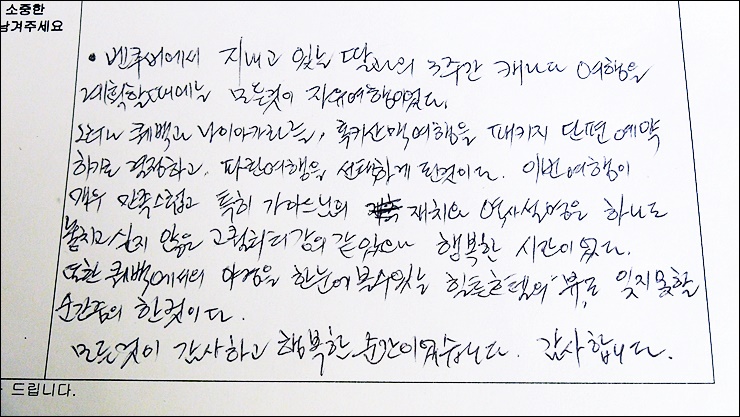 소중한
남겨주세요
• 벤쿠버에서 지내고 있는 딸과의 3주간 캐나다 여행을
계획할때에는 모든것이 자유여행이었다.
그러나 퀘백과 나이아가라는, 록키산맥여행을 패키지 단편 예약
하기로 결정하고. 파란여행을 선택하게 된것이다. 이번 여행이
매우 만족스럽고 특히 가이드님의 재치와 역사설명을 하나도
놓치고 싶지 않은 고퀄리티 강의 같았으니 행복한 시간이었다.
또한 퀘백에서의 야경을 한눈에 볼수있는 힐튼호텔의 뷰도 잊지못할
순간들의 한컷이다.
모든것이 감사하고 행복한 순간이었습니다. 감사합니다.
드립니다.